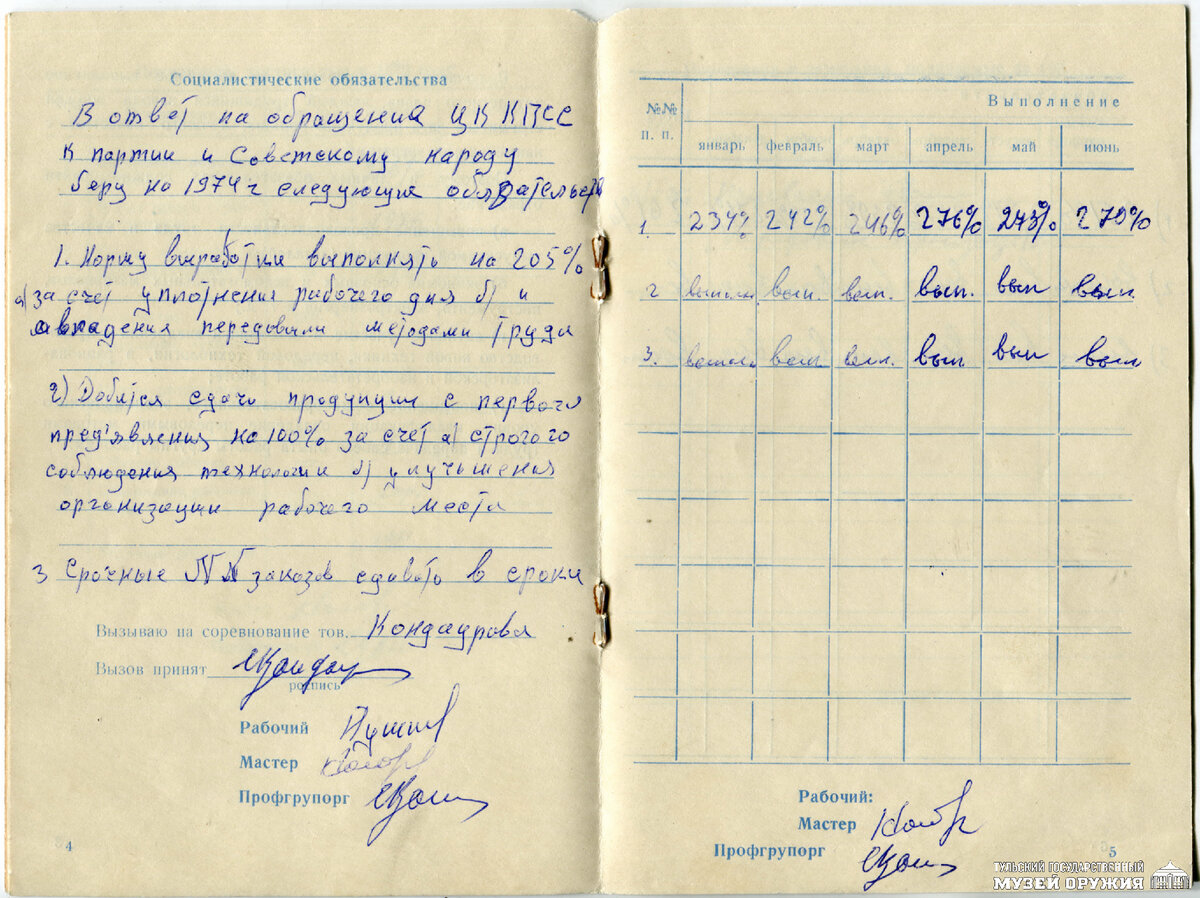 Социалистические обязательства
В ответ на обращения ЦК КПСС
К партии и Советскому народу
беру на 1974 г следующие обязательств
1. Норму выработки выполнять на 205%
а) за счет уплотнения рабочего дня б) и
передовыми методами труда
2) Добится сдачи продукции с первого
пред'явления на 100% за счет а) строгого
соблюдения технологии б) улучьшения
организации рабочего места
3 Срочные №№ заказов сдавать в сроки
Вызываю на соревнование тов. Кондаурова
Вызов принят
роспись
Рабочий
Мастер
Профгрупорг
4
№№ п. п.
Выполнение
январь февраль март апрель май июнь
1. 234% 242% 246% 276% 273% 279%
2 выполн вып. вып. вып. вып вып
3. выполн вып вып. вып вып вып
Рабочий:
Мастер
Профгрупорг
5
ТУЛЬСКИЙ ГОСУДАРСТВЕННЫЙ
МУЗЕЙ ОРУЖИЯ